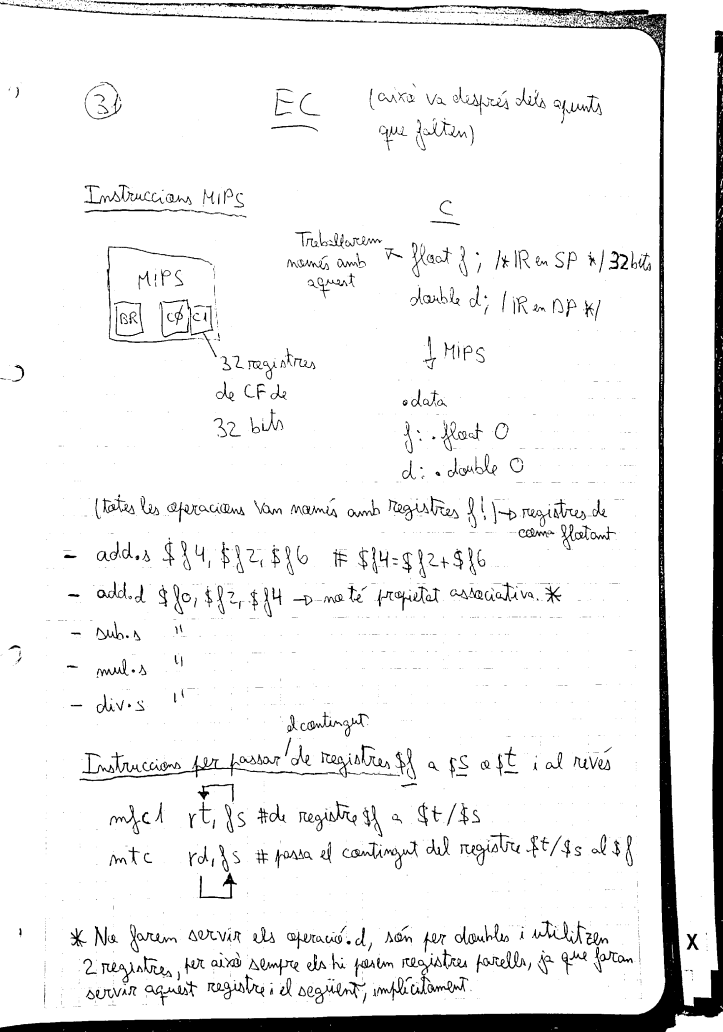 31
EC
(això va després dels apunts
que falten)
Instruccions MIPS
C
Treballarem
només amb
aquest
float f; /* IR en SP */ 32 bits
double d; / IR en DP */
MIPS
BR CØ C1
32 registres
de CF de
32 bits
↓ MIPS
.data
f: .float 0
d: .double 0
(totes les operacions van només amb registres f!) → registres de
coma flotant
- add.s $f4, $f2, $f6 # $f4=$f2+$f6
- add.d $f0, $f2, $f4 → no té propietat associativa. *
- sub.s "
- mul.s "
- div.s "
el contingut
Instruccions per passar de registres $f a $s o $t i al revés
mfc1 rt, fs # de registre $f a $t/$s
mtc rd, fs # passa el contingut del registre $t/$s al $f
* No farem servir els operació.d, són per doubles i utilitzen
2 registres, per això sempre els hi posem registres parells, ja que faran
servir aquest registre i el següent, implícitament.
X